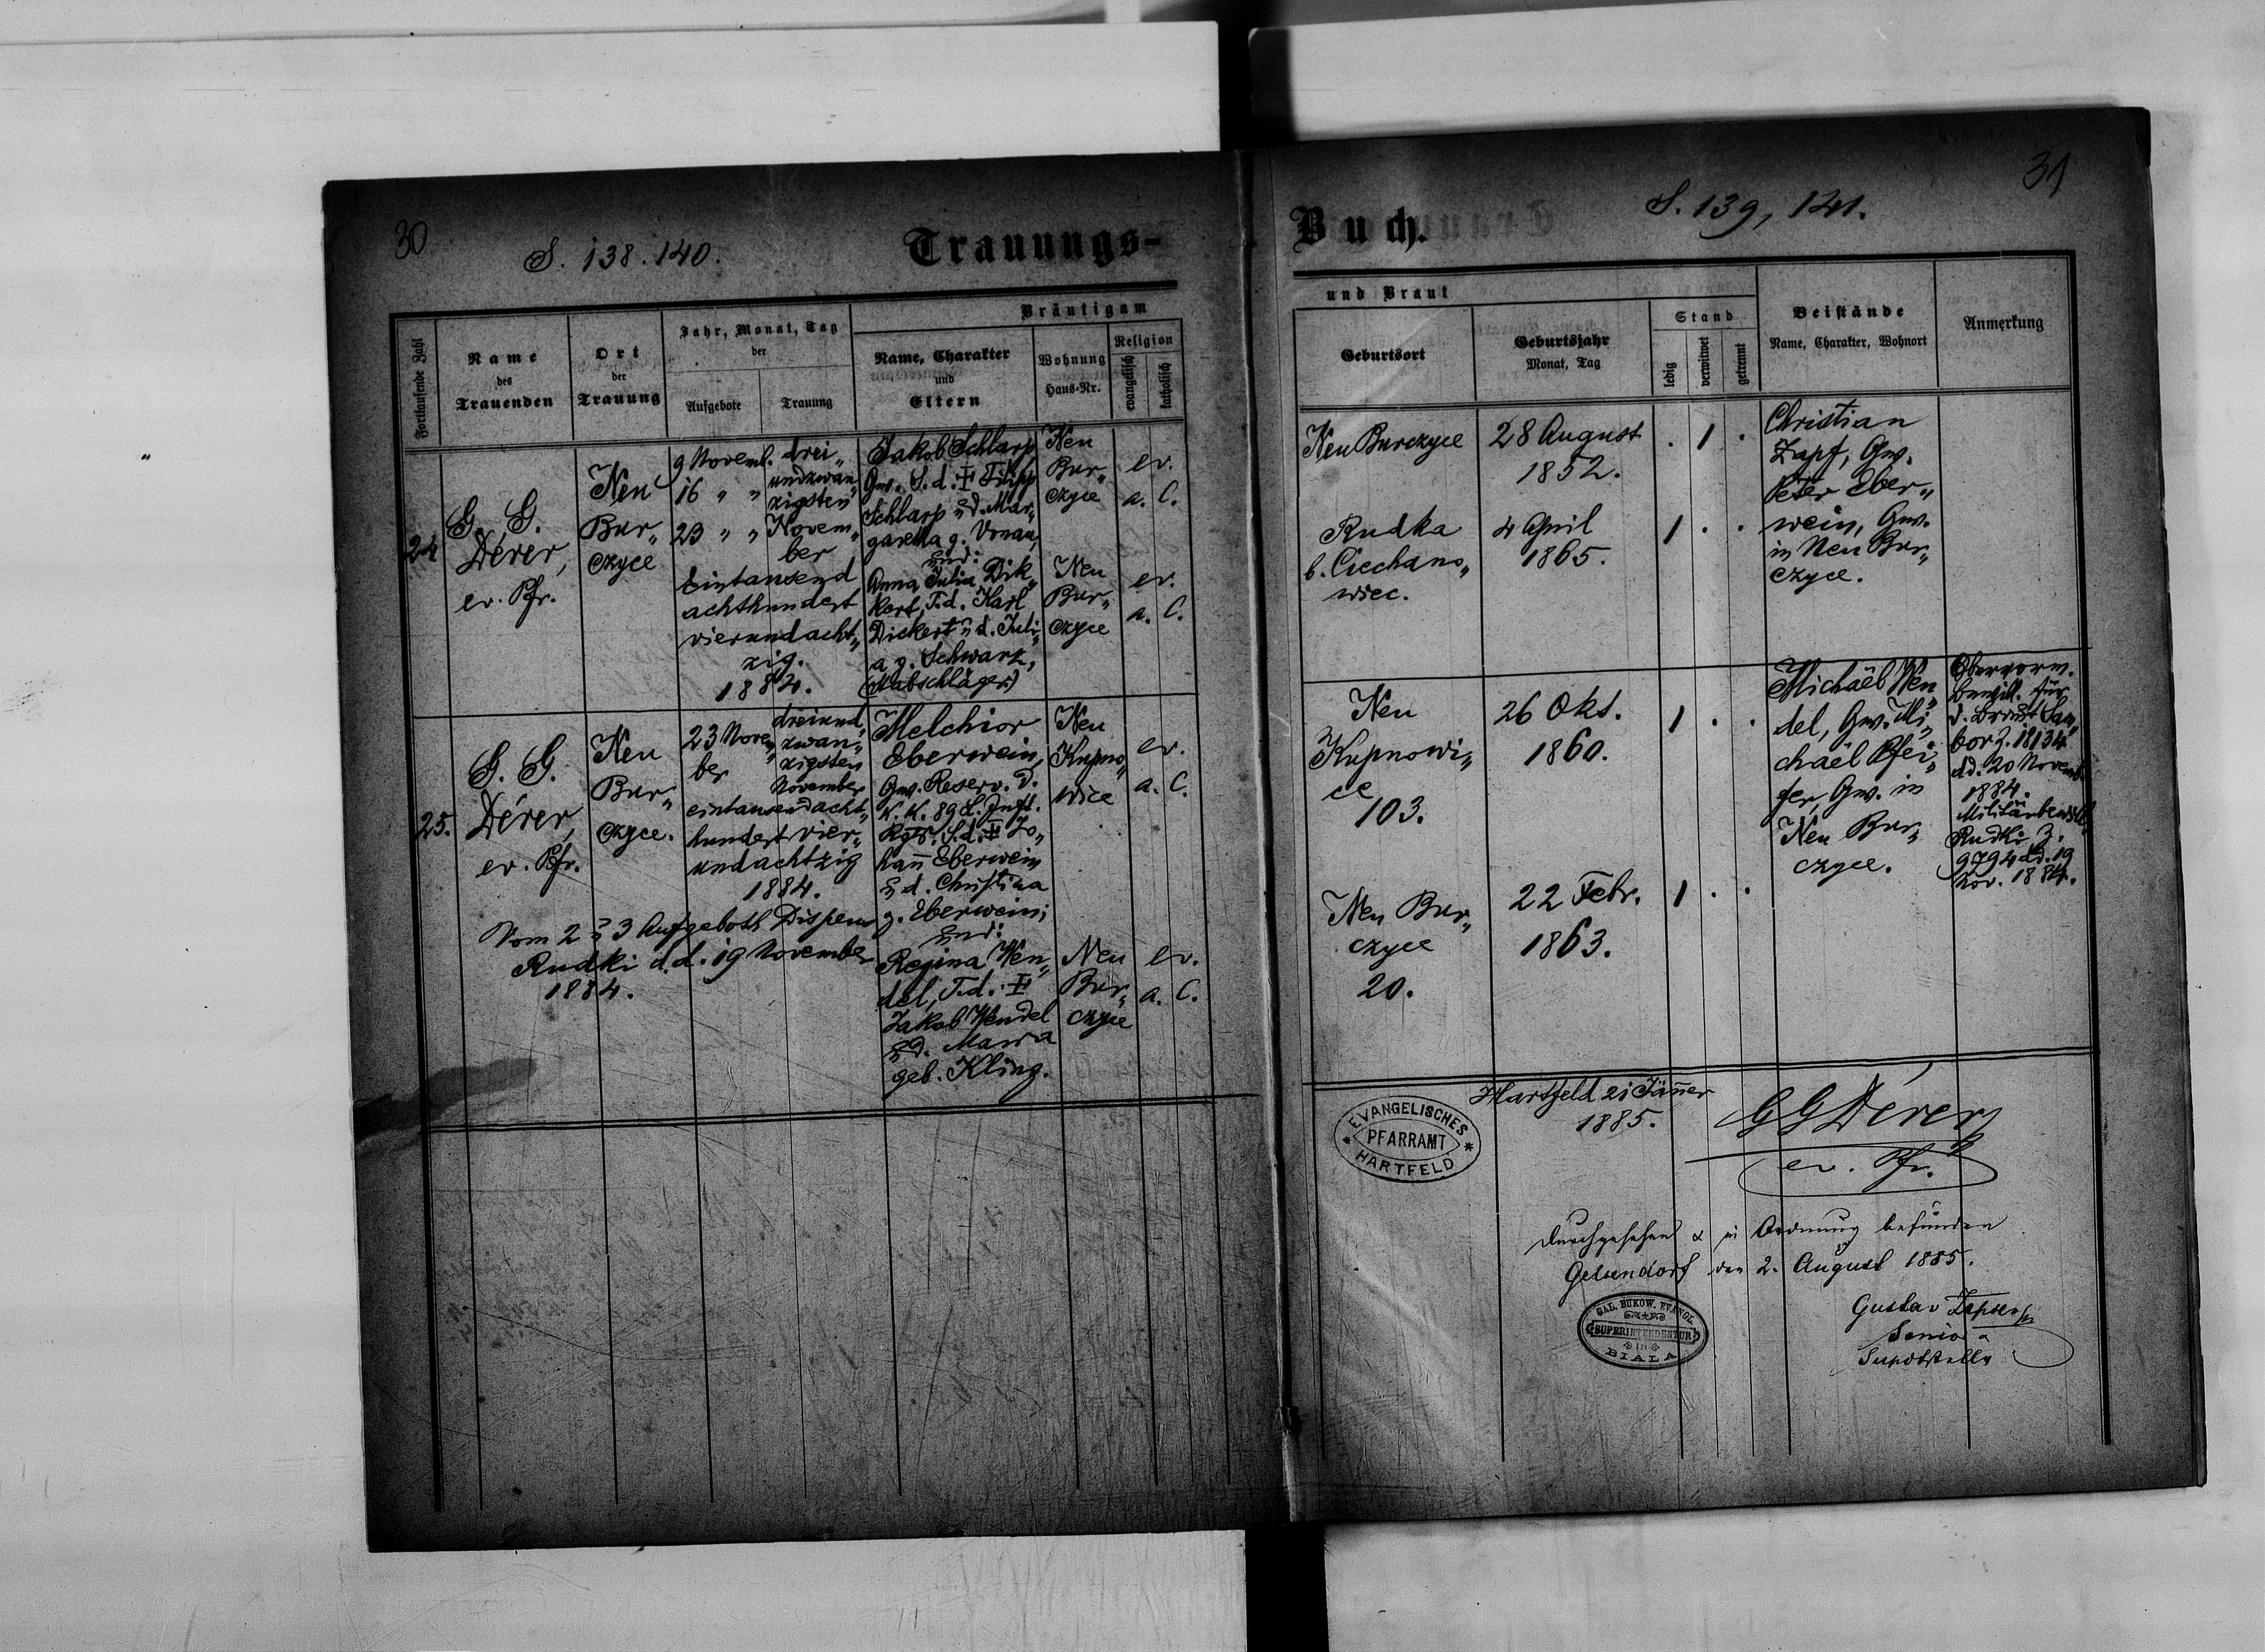 30
S. 138. 140.
Trauungs-
Fortlaufende Zahl
Name
des
Trauenden
Ort
der
Trauung
Jahr, Monat, Tag
der
Aufgebote
Trauung
Bräutigam
Name, Charakter
und
Eltern
Wohnung
Haus-Nr.
Religion
evangelisch
katholisch
24
G. G.
Dérer,
ev. Pfr.
Neu
Bur„
czyce
9 Novemb.
16 „ „
23 „ „
drei„
undzwan„
zigsten
Novem„
ber
Eintausend
achthundert
vierundacht„
zig.
1884.
Jakob Schlarp
Gw. S. d. ‡ Filipp
Schlarp u d. Mar„
garetha g. Vonau,
und:
Anna Julia Dik„
kert, T. d. Karl
Dickert u d. Juli„
a g. Schwarz,
Neu
Bur„
czyce
ev.
a. C.
Neu
Bur„
czyce
ev.
a. C.
25.
G. G.
Dérer,
ev. Pfr.
Neu
Bur„
czyce.
23 Novem„
ber
dreiund„
zwan„
zigsten
November
eintausendacht„
hundert vier„
undachtzig
1884.
Vom 2 u 3 Aufgeboth Dispens
Rudki d. d. 19 November
1884.
Melchior
Eberwein,
Gw. Reserv. d.
K. K. 89 L. Inft.
Rgts. S. d. ‡ Jo„
hann Eberwein
u d. Christina
g. Eberwein;
und:
Regina Wen„
del, T. d. ‡
Jakob Wendel
u d. Maria
geb. Kling.
Neu
Kupno„
wice
ev.
a. C.
Neu
Bur„
czyce
ev.
a. C.
31
S. 139, 141.
Buch.
und Braut
Geburtsort
Geburtsjahr
Monat, Tag
Stand
ledig
verwitwet
getrennt
Beistände
Name, Charakter, Wohnort
Anmerkung
Neu Burczyce
28 August
1852.
. 1 .
Christian
Zapf, Gw.
Peter Eber„
wein, Gw.
in Neu Bur„
czyce.
Rudka
b. Ciechano„
wiec.
4 April
1865.
1 . .
Neu
Kupnowi„
ce
103.
26 Okt.
1860.
1 . .
Michäel Wen„
del, Gw. Mi„
chäel Pfei„
fer, Gw. in
Neu Bur„
czyce.
Obervorm.
bewill. für
d. Braut Sam„
bor Z. 18134
dd. 20 Novemb.
1884.
Militärbewill.
Rudki Z.
9794 dd. 19
Nov. 1884.
Neu Bur„
czyce
20.
22 Febr.
1863.
1 . .
Hartfeld 21 Jänner
1885.
EVANGELISCHES
PFARRAMT
HARTFELD
GGDérer
ev. Pfr.
Durchgesehen & in Ordnung befunden
Gelsendorf den 2. August 1885.
GAL. BUKOW. EVANGL.
SUPERINTENDENTUR
IN
BIALA
Gustav
Senior